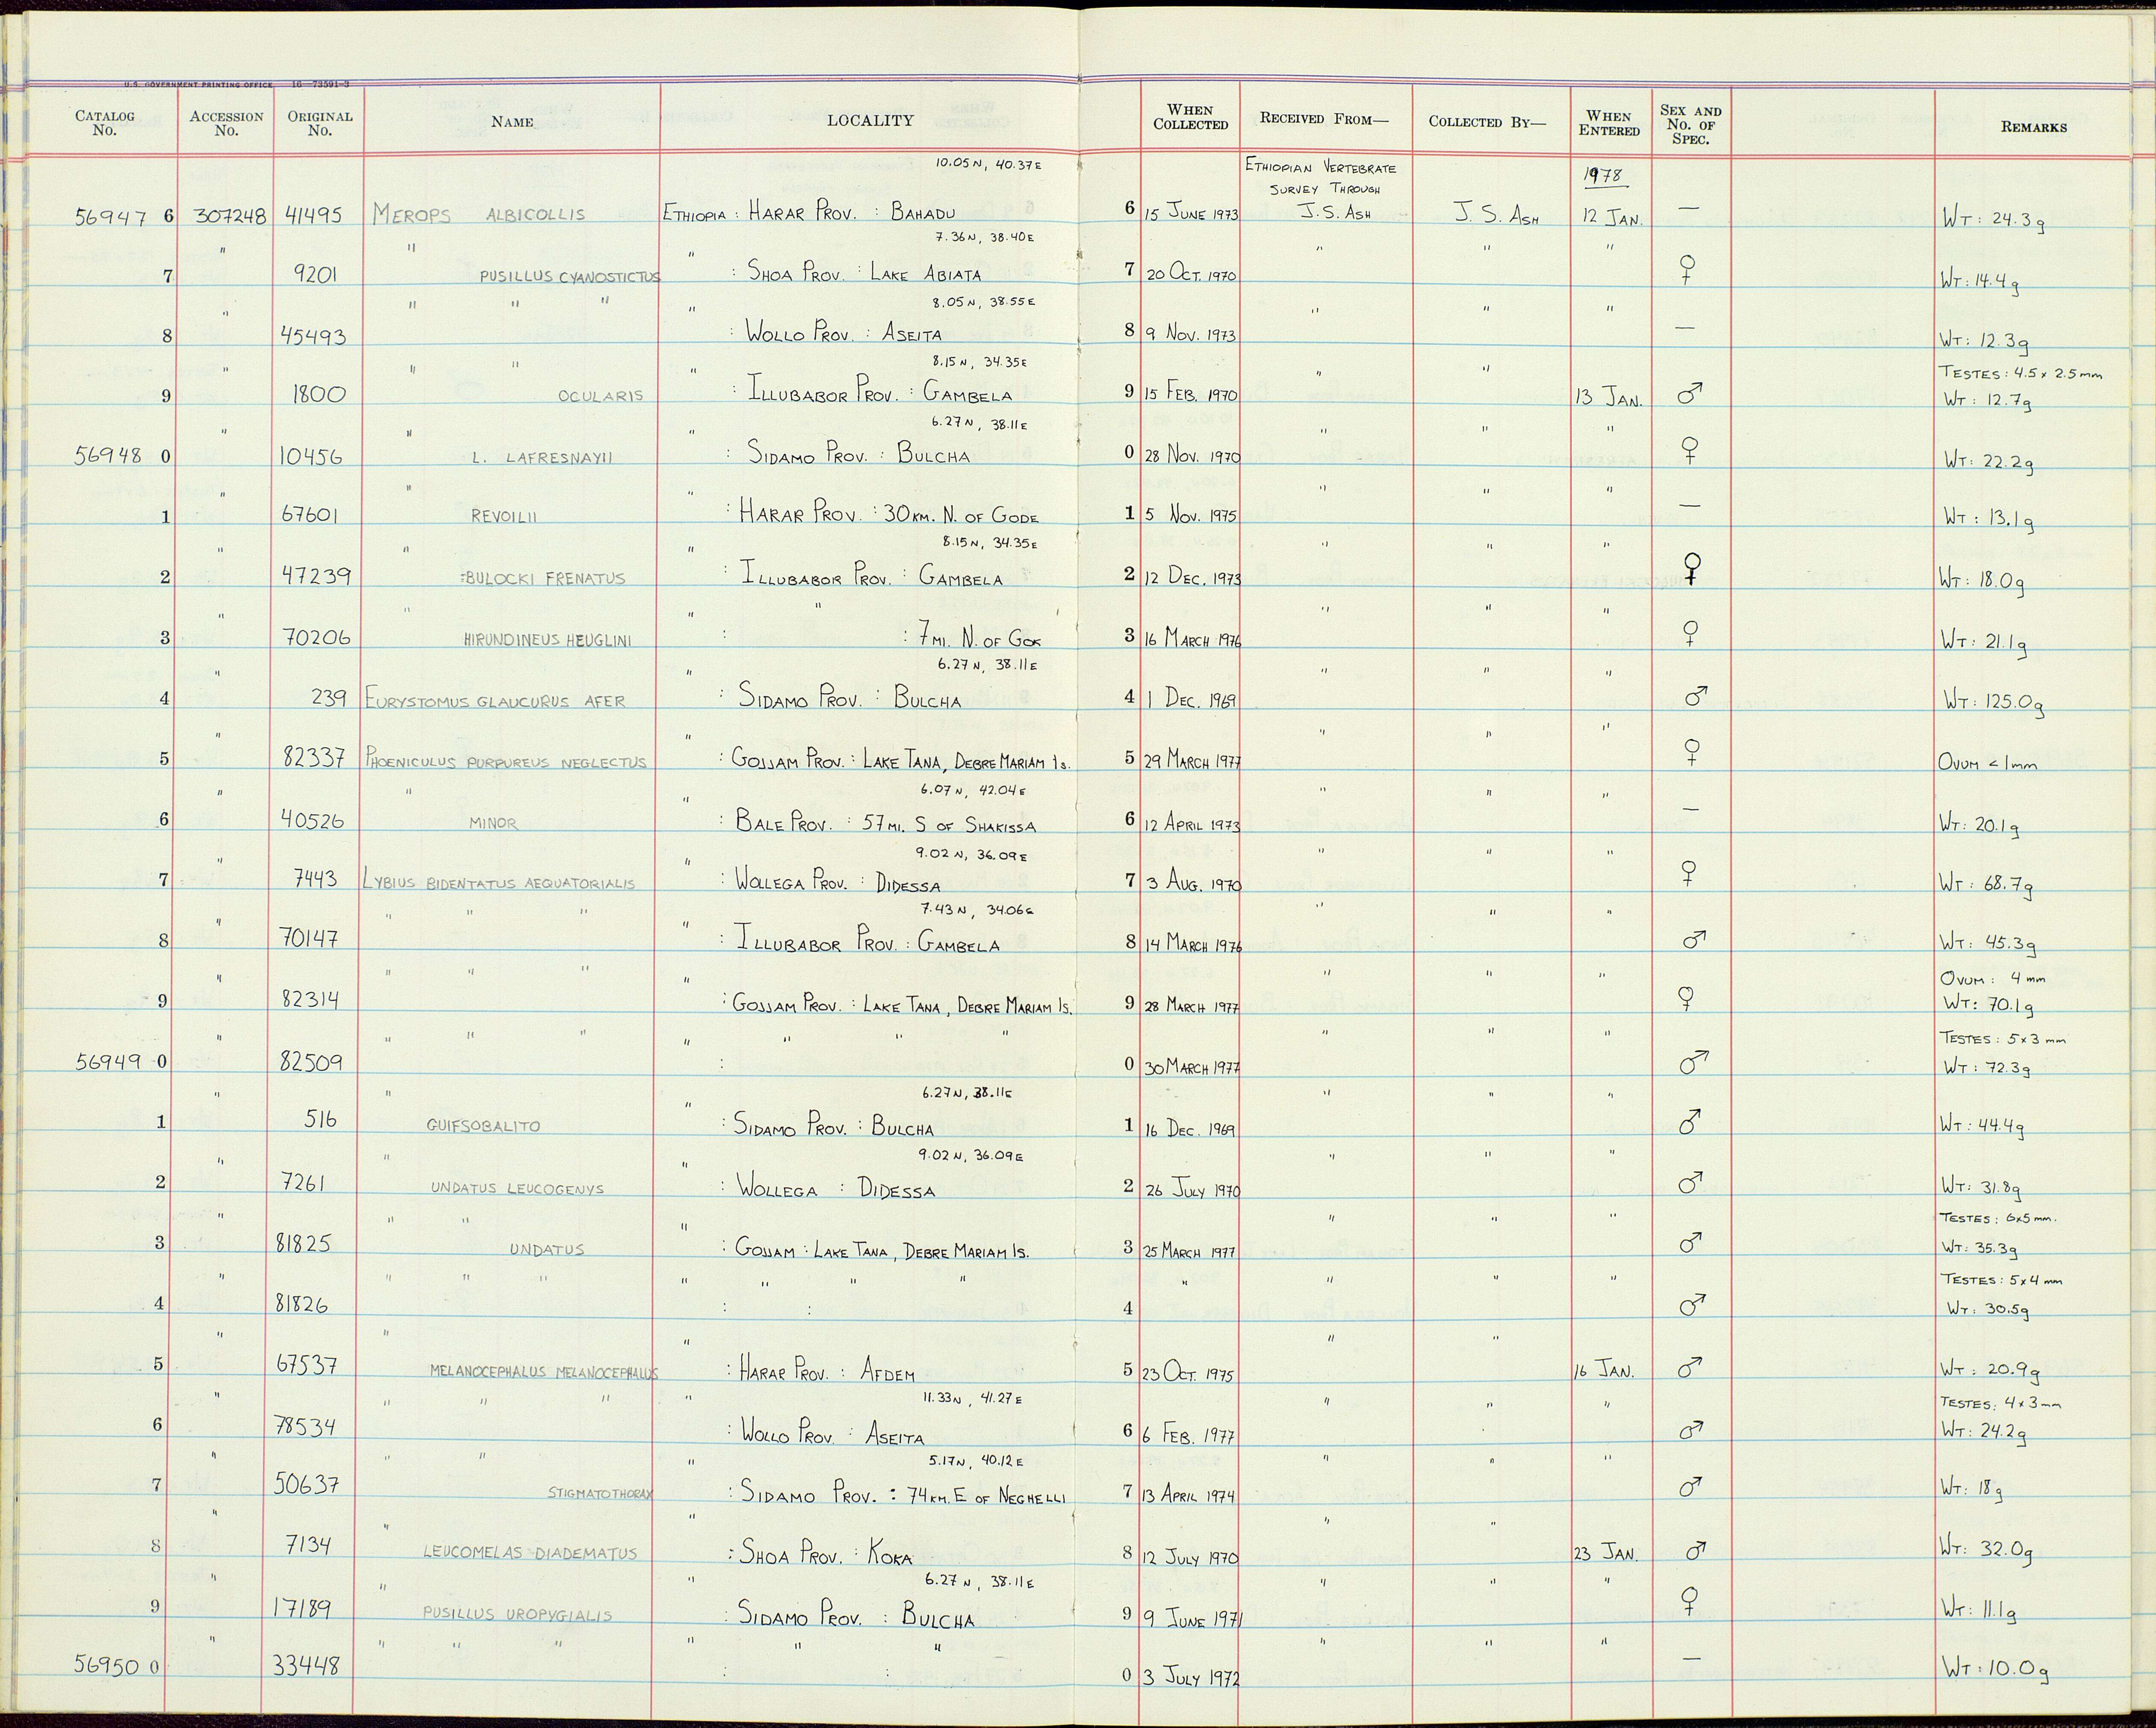 U.S. GOVERNMENT PRINTING OFFICE 16—73591-3
CATALOG No. ACCESSION No. ORIGINAL No. NAME LOCALITY WHEN COLLECTED RECEIVED FROM— COLLECTED BY— WHEN ENTERED SEX AND No. OF SPEC. REMARKS
10.05N, 40.37E ETHIOPIAN VERTEBRATE SURVEY THROUGH 1978
56947 6 307248 41495 MEROPS ALBICOLLIS ETHIOPIA : HARAR PROV. : BAHADU 6 15 JUNE 1973 J.S. ASH J.S. ASH 12 JAN. — WT: 24.3g
" " " 7.36N, 38.40E " " "
7 9201 PUSILLUS CYANOSTICTUS : SHOA PROV. : LAKE ABIATA 7 20 OCT. 1970 ♀ WT: 14.4g
" " " " " 8.05N, 38.55E " " "
8 45493 : WOLLO PROV. : ASEITA 8 9 NOV. 1973 — WT: 12.3g
" " " " 8.15N, 34.35E " " TESTES: 4.5 x 2.5mm
9 1800 OCULARIS : ILLUBABOR PROV. : GAMBELA 9 15 FEB. 1970 13 JAN. ♂ WT: 12.7g
" " " 6.27N, 38.11E " " "
56948 0 10456 L. LAFRESNAYII : SIDAMO PROV. : BULCHA 0 28 NOV. 1970 ♀ WT: 22.2g
" " " " " "
1 67601 REVOILII : HARAR PROV. : 30KM. N. OF GODE 1 5 NOV. 1975 — WT: 13.1g
" " " 8.15N, 34.35E " " "
2 47239 :BULOCKI FRENATUS : ILLUBABOR PROV. : GAMBELA 2 12 DEC. 1973 ♀ WT: 18.0g
" " " " " " "
3 70206 HIRUNDINEUS HEUGLINI : : 7MI. N. OF GOK 3 16 MARCH 1976 ♀ WT: 21.1g
" " 6.27N, 38.11E " " "
4 239 EURYSTOMUS GLAUCURUS AFER : SIDAMO PROV. : BULCHA 4 1 DEC. 1969 ♂ WT: 125.0g
" " " " "
5 82337 PHOENICULUS PURPUREUS NEGLECTUS : GOJJAM PROV. : LAKE TANA, DEBRE MARIAM IS. 5 29 MARCH 1977 ♀ OVUM < 1mm
" " " 6.07N, 42.04E " " "
6 40526 MINOR : BALE PROV. : 57MI. S OF SHAKISSA 6 12 APRIL 1973 — WT: 20.1g
" " 9.02N, 36.09E " " "
7 7443 LYBIUS BIDENTATUS AEQUATORIALIS : WOLLEGA PROV. : DIDESSA 7 3 AUG. 1970 ♀ WT: 68.7g
" " " " " 7.43N, 34.06E " " "
8 70147 : ILLUBABOR PROV. : GAMBELA 8 14 MARCH 1976 ♂ WT: 45.3g
" " " " " " " " OVUM: 4mm
9 82314 : GOJJAM PROV. : LAKE TANA, DEBRE MARIAM IS. 9 28 MARCH 1977 ♀ WT: 70.1g
" " " " " " " " " " " TESTES: 5x3 mm
56949 0 82509 : 0 30 MARCH 1977 ♂ WT: 72.3g
" " " 6.27N, 38.11E " " "
1 516 GUIFSOBALITO : SIDAMO PROV. : BULCHA 1 16 DEC. 1969 ♂ WT: 44.4g
" " " 9.02N, 36.09E " " "
2 7261 UNDATUS LEUCOGENYS : WOLLEGA : DIDESSA 2 26 JULY 1970 ♂ WT: 31.8g
" " " " " " " TESTES: 6x5mm.
3 81825 UNDATUS : GOJJAM : LAKE TANA, DEBRE MARIAM IS. 3 25 MARCH 1977 ♂ WT: 35.3g
" " " " " " " " " " " " TESTES: 5x4mm
4 81826 : : 4 ♂ WT: 30.5g
" " " " "
5 67537 MELANOCEPHALUS MELANOCEPHALUS : HARAR PROV. : AFDEM 5 23 OCT. 1975 16 JAN. ♂ WT: 20.9g
" " " " " 11.33N, 41.27E " " " TESTES: 4x3mm
6 78534 : WOLLO PROV. : ASEITA 6 6 FEB. 1977 ♂ WT: 24.2g
" " " " 5.17N, 40.12E " " "
7 50637 STIGMATOTHORAX : SIDAMO PROV. : 74KM. E OF NEGHELLI 7 13 APRIL 1974 ♂ WT: 18g
" " " " "
8 7134 LEUCOMELAS DIADEMATUS : SHOA PROV. : KOKA 8 12 JULY 1970 23 JAN. ♂ WT: 32.0g
" " " 6.27N, 38.11E " " "
9 17189 PUSILLUS UROPYGIALIS : SIDAMO PROV. : BULCHA 9 9 JUNE 1971 ♀ WT: 11.1g
" " " " " " " " " "
56950 0 33448 : : 0 3 JULY 1972 — WT: 10.0g